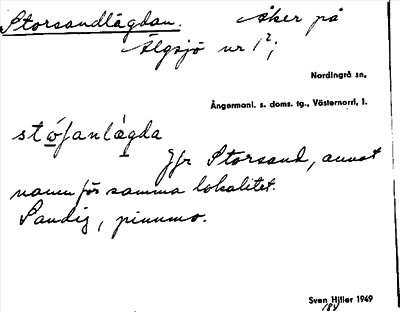 Storsandlägdan. Åker på
Älgsjö nr 1²;
Nordingrå sn,
Ångermanl. s. doms. tg., Västernorrl, l.
Jfr Storsand, annat
namn för samma lokalitet.
Sandig, pinnmo.
Sven Hiller 1949